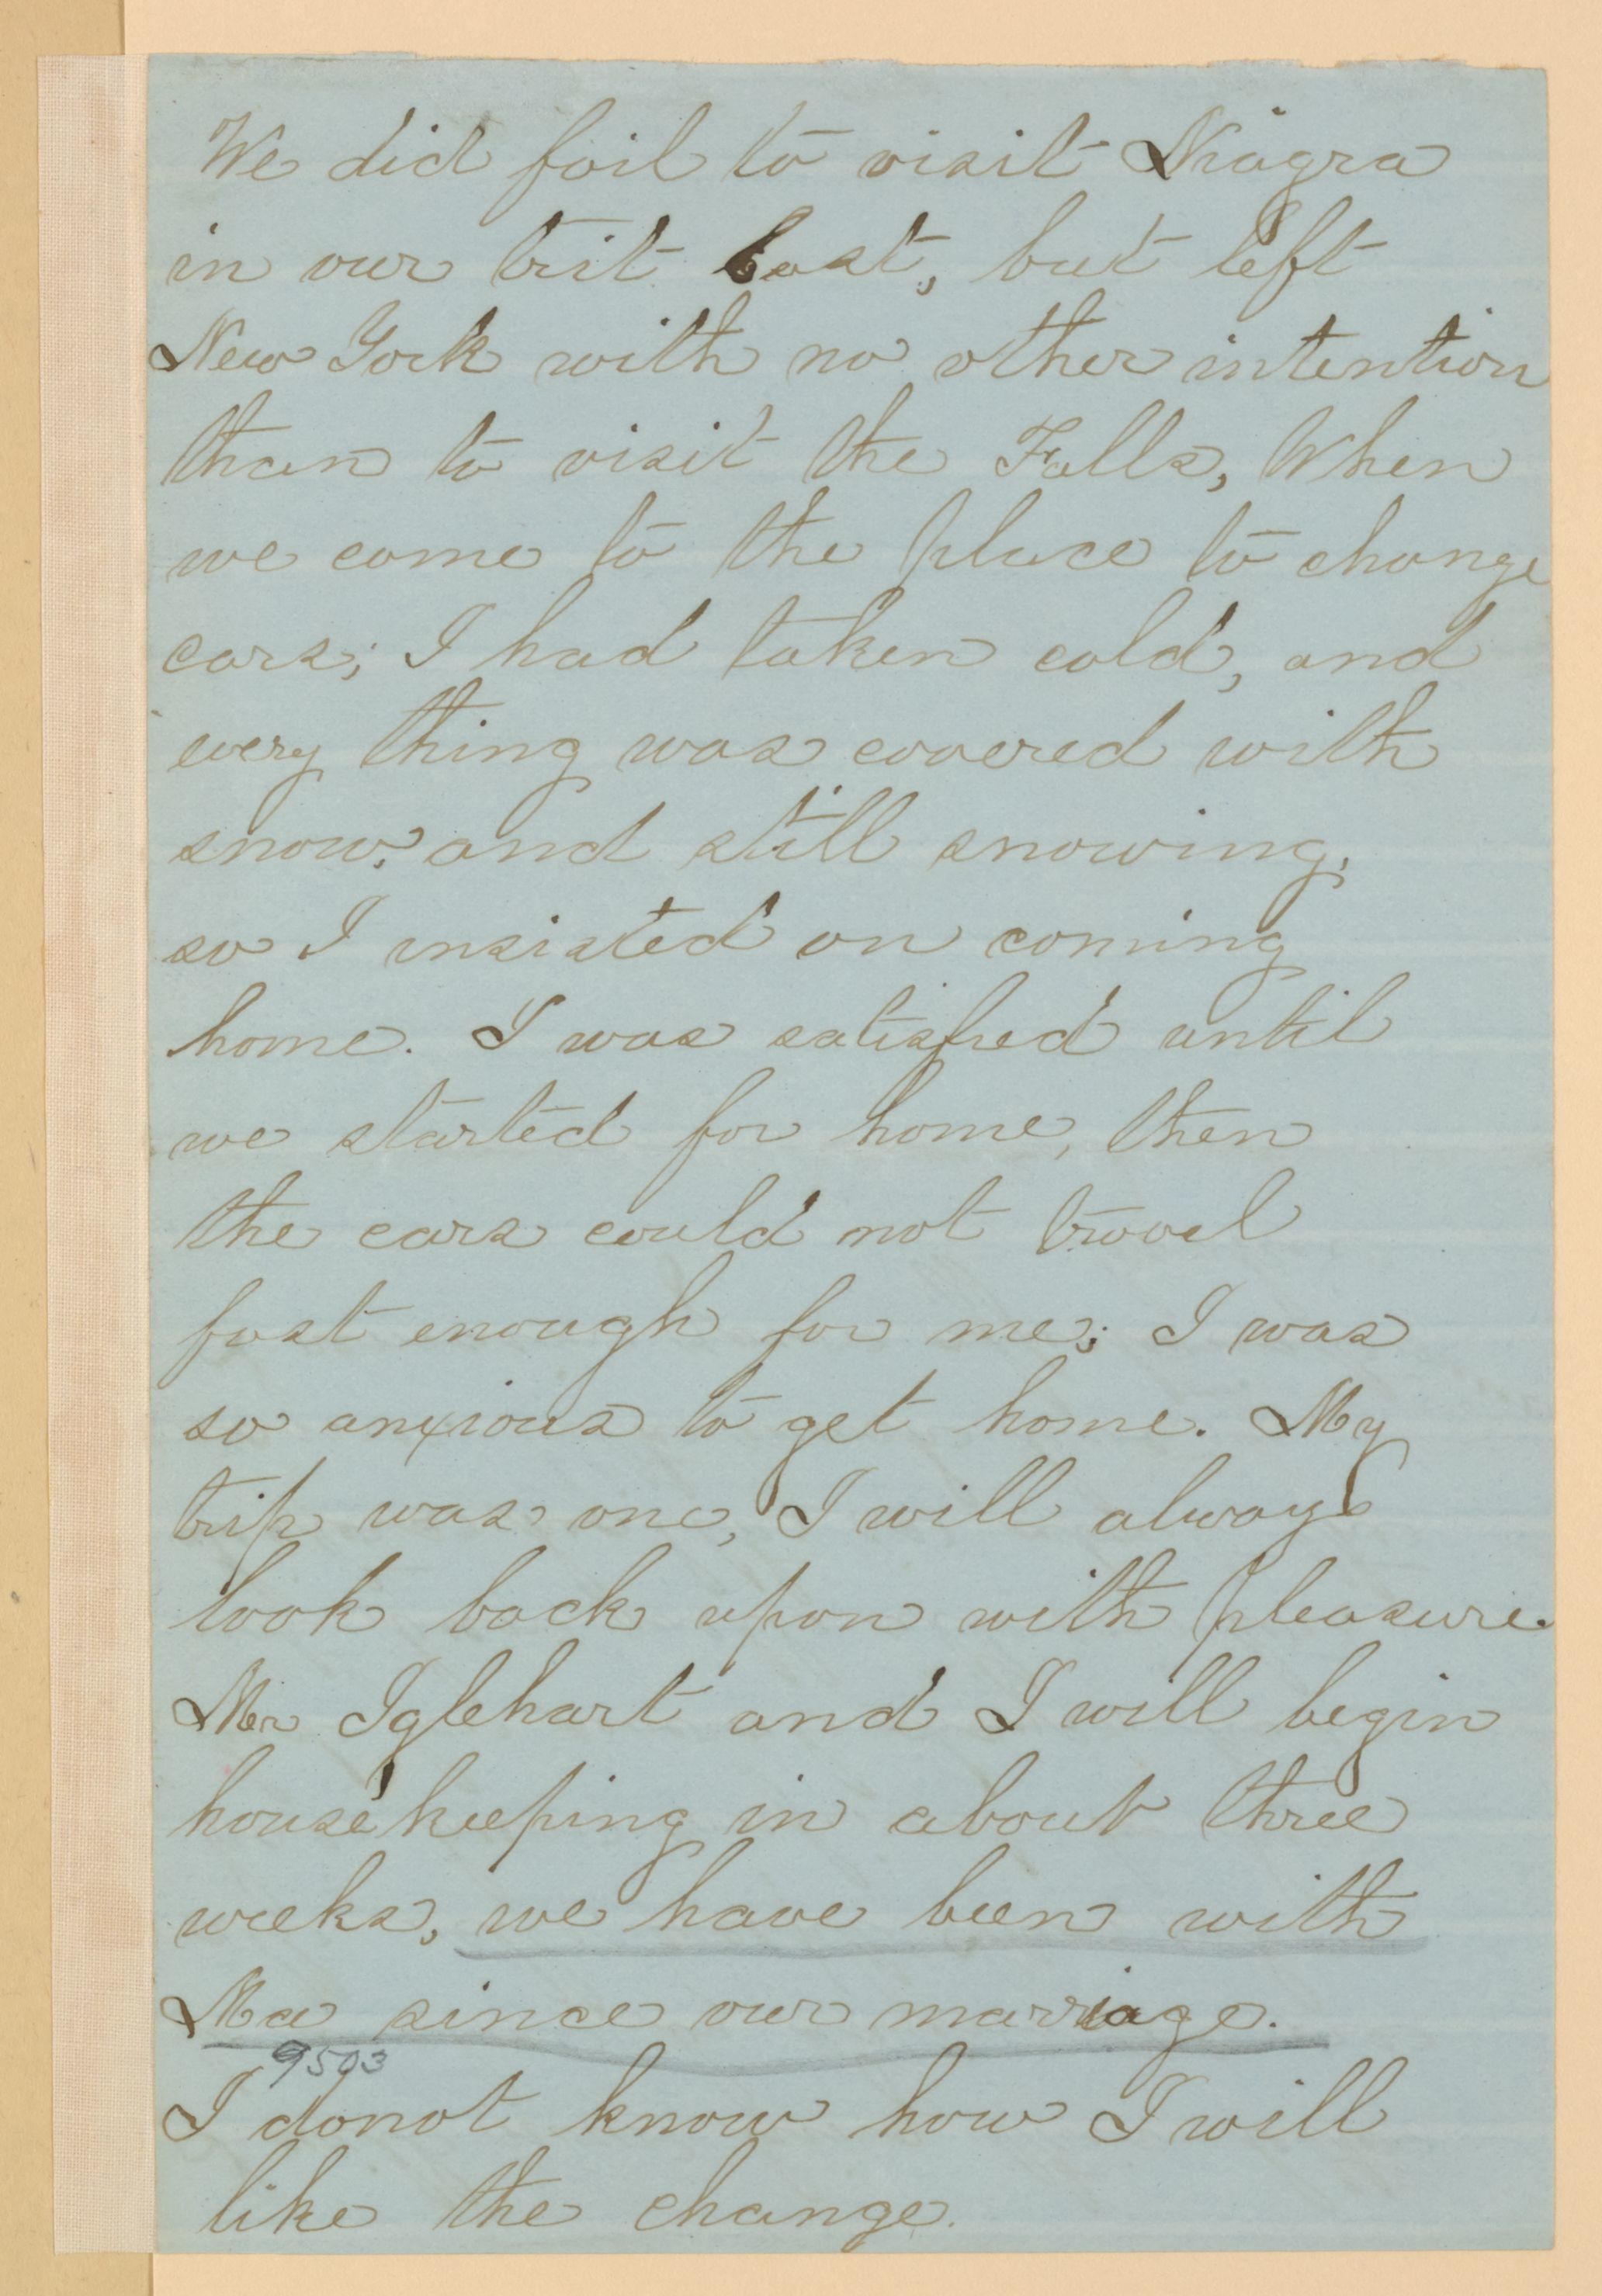 We did fail to visit Niagra
in our trit East, but left
New York with no other intention
than to visit the Falls, When
we came to the place to change
cars; I had taken cold, and
every thing was covered with
snow, and still snowing,
so I insisted on coming
home. I was satisfied until
we started for home, then
the cars could not travel
fast enough for me; I was
so anxious to get home. My
trip was one, I will always
look back upon with pleasure.
Mr Iglehart and I will begin
house keeping in about three
weeks, we have been with
Ma since our marriage.
9503
I donot know how I will
like the change.